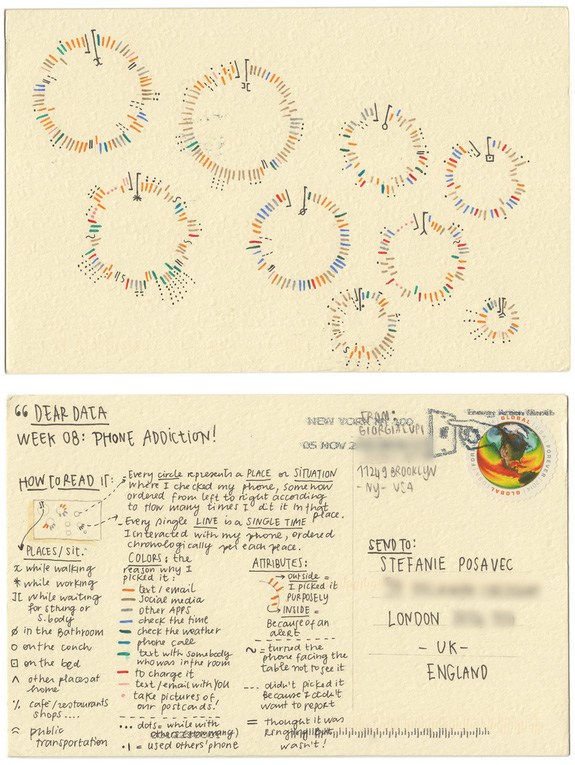 “ DEAR DATA
WEEK 08: PHONE ADDICTION!
HOW TO READ IT:
Every circle represents a PLACE or SITUATION
where I checked my phone, somehow
ordered from left to right according
to How many times I did it in that
place.
Every single LINE is a SINGLE TIME
I interacted with my phone, ordered
chronologically per each peace.
PLACES/SIT.
while walking
* while working
][ while waiting
for sthung or
s.body
ø in the bathroom
o on the couch
⊡ on the bed
^ other places at
home
% cafe/restaurants
shops....
public
transportation
COLORS: the
reason why I
picked it:
text/email
social media
other APPS
check the time
check the weather
phone call
text with somebody
who was in the room
to charge it
text/email with YOU
take pictures of
our postcards!
... dots = while with
others
= used others' phone
ATTRIBUTES:
outside =
I picked it
PURPOSELY
INSIDE =
Because of an
alert
~ = turned the
phone facing the
table not to see it
.... didn't picked it
because I didn't
want to report
= thought it was
ringing but
wasn't!
NEW YORK NY 100
05 NOV 2
FROM:
GIORGIA LUPI
11249 BROOKLYN
- NY - USA
GLOBAL
FOREVER
USA
GLOBAL
SEND TO:
STEFANIE POSAVEC
LONDON
- UK -
ENGLAND